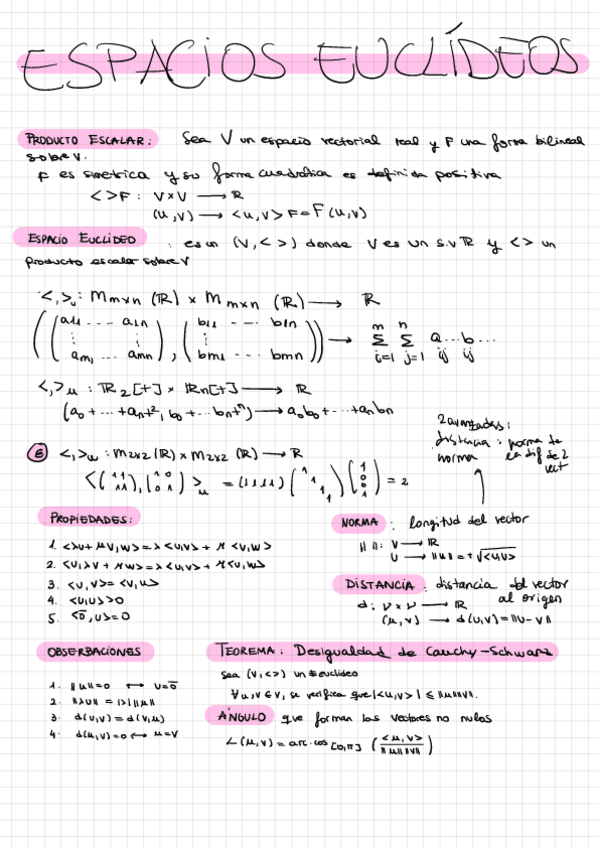 ESPACIOS EUCLÍDEOS
PRODUCTO ESCALAR: Sea V un espacio vectorial real y F una forma bilineal
sobre V.
F es simetrica y su forma cuadrática es definida positiva
< >F : V×V → ℝ
(u,v) → <u,v>F = F(u,v)
ESPACIO EUCLIDEO : es un (V,< >) donde V es un s.v ℝ y <> un
producto escalar sobre V
<,>u : Mmxn (ℝ) × Mmxn (ℝ) → ℝ
((a11 ... a1n ⋮ ⋮ am1 ... amn), (b11 --- b1n ⋮ ⋮ bm1 --- bmn)) → m Σ i=1 n Σ j=1 a...b... ij ij
<,>u : ℝ2[t] × ℝn[t] → ℝ
(a0 + ... + ant², b0 + ... bnt^n) → a0b0 + ... + anbn
2 avanzadas:
distancia : norma de
norma la dif de 2
vect
E <,>u : M2x2 (ℝ) × M2x2 (ℝ) → ℝ
<(1 1 1 1), (1 0 0 1)>u = (1 1 1 1) (1 1 1 1) (1 0 0 1) = 2
PROPIEDADES:
1. <λu + μv, w> = λ<u,v> + μ<v,w>
2. <u, λv + μw> = λ<u,v> + μ<v,w>
3. <u,v> = <v,u>
4. <u,u> > 0
5. <0̄,u> = 0
NORMA : longitud del vector
|| ||: V → ℝ
u → ||u|| = +√<u,u>
DISTANCIA : distancia del vector
al origen
d: V×V → ℝ
(u,v) → d(u,v) = ||u-v||
OBSERBACIONES
1. ||u|| = 0 ↔ u = 0̄
2. ||λu|| = |λ| ||u||
3. d(u,v) = d(v,u)
4. d(u,v) = 0 ↔ u = v
TEOREMA : Desigualdad de Cauchy-Schwarz
Sea (V,<>) un E euclídeo
∀u,v ∈ V, se verifica que |<u,v>| ≤ ||u|| ||v||.
ÁNGULO que forman los vectores no nulos
∠(u,v) = arc·cos [0,π] (<u,v> / ||u|| ||v||)